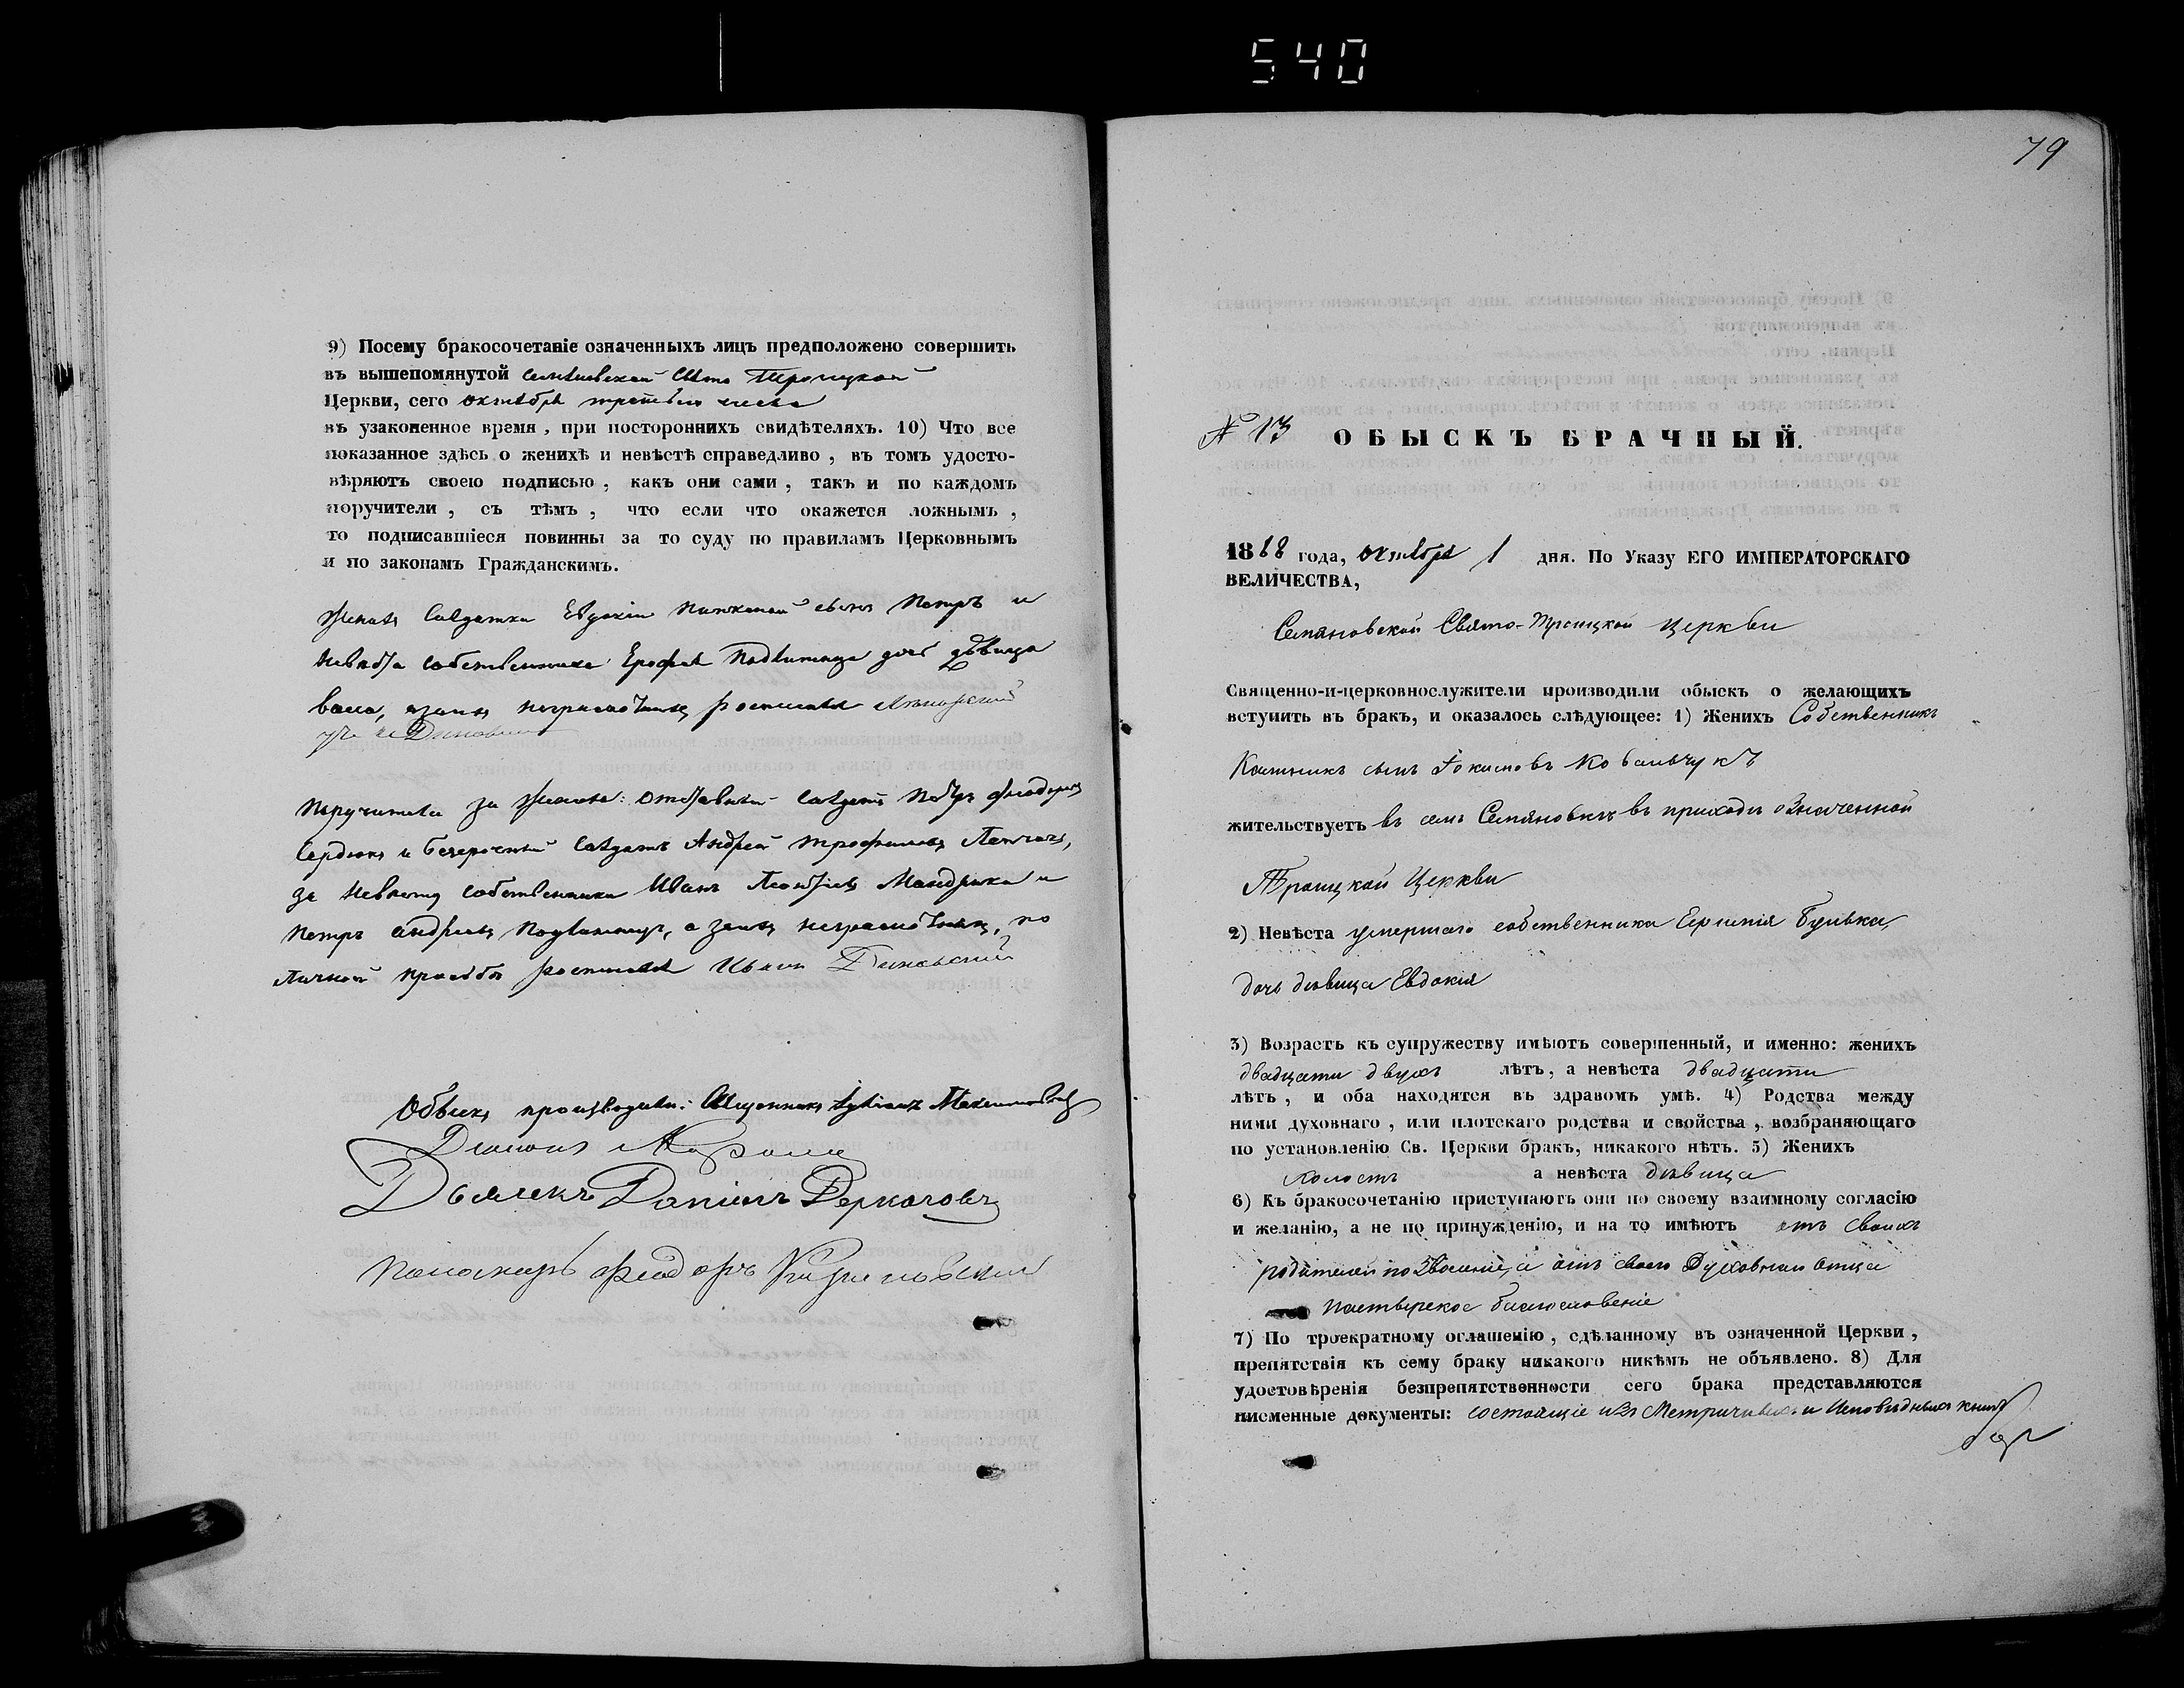 540
9) Посему бракосочетаніе означенныхъ лицъ предположено совершить
въ вышепомянутой Семяновской Свято Троицкой
Церкви, сего октября третьяго числа
въ узаконенное время, при постороннихъ свидѣтеляхъ. 10) Что все
показанное здѣсь о женихѣ и невѣстѣ справедливо, въ томъ удосто-
вѣряютъ своею подписью, какъ они сами, такъ и по каждомъ
поручители, съ тѣмъ, что если что окажется ложнымъ,
то подписавшіеся повинны за то суду по правиламъ Церковнымъ
и по законамъ Гражданскимъ.
Женихъ Солдатки Евдокіи сынъ Петръ и
невѣста собственника Ерофея дочь дѣвица
а за нихъ неграмотныхъ росписался
Поручители за жениха: отставной солдатъ Петръ Феодоровъ
Сердюкъ и безсрочный солдатъ Андрей Трофимовъ
за невѣсту собственники Иванъ Леонтіевъ Мандрика и
Петръ Андреевъ а за нихъ неграмотныхъ, по
личной просьбѣ росписался Иванъ
Обыскъ производили: Священникъ Максимовичъ
Діаконъ
Дьячекъ Даніилъ Деркачовъ
Пономарь Феодоръ
79
№ 13 ОБЫСКЪ БРАЧНЫЙ.
1868 года, октября 1 дня. По Указу ЕГО ИМПЕРАТОРСКАГО
ВЕЛИЧЕСТВА,
Семяновской Свято-Троицкой Церкви
Священно-и-церковнослужители производили обыскъ о желающихъ
вступить въ бракъ, и оказалось слѣдующее: 1) Женихъ Собственникъ
Калиникъ сынъ Іокимовъ Ковальчукъ
жительствуетъ въ селѣ Семяновкѣ въ приходѣ означенной
Троицкой Церкви
2) Невѣста умершаго собственника Булвка
дочь дѣвица Евдокія
3) Возрастъ къ супружеству имѣютъ совершенный, и именно: женихъ
двадцати двухъ лѣтъ, а невѣста двадцати
лѣтъ, и оба находятся въ здравомъ умѣ. 4) Родства между
ними духовнаго, или плотскаго родства и свойства, возбраняющаго
по установленію Св. Церкви бракъ, никакого нѣтъ. 5) Женихъ
холостъ а невѣста дѣвица
6) Къ бракосочетанію приступаютъ они по своему взаимному согласію
и желанію, а не по принужденію, и на то имѣютъ отъ своихъ
родителей позволеніе, а отъ своего Духовнаго Отца
пастырское благословеніе
7) По троекратному оглашенію, сдѣланному въ означенной Церкви,
препятствія къ сему браку никакого никѣмъ не объявлено. 8) Для
удостовѣренія безпрепятственности сего брака представляются
писменные документы: состоящіе изъ Метричныхъ и Исповѣдныхъ книгъ